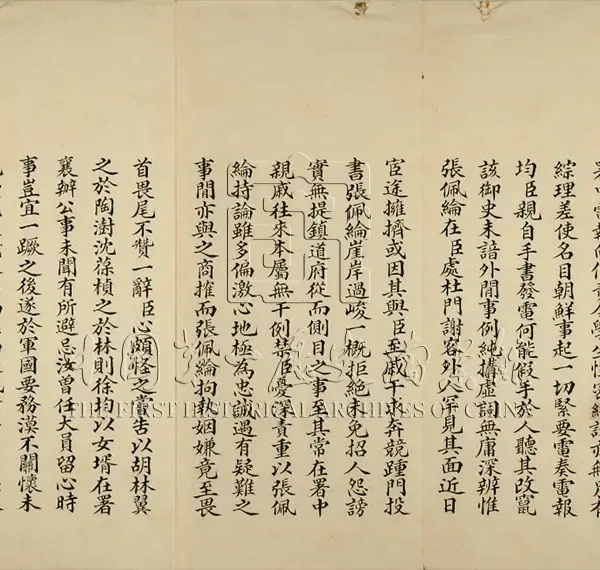 綜理差使名目朝鮮事起一切緊要電奏電報
均臣親自手書發電何能假手於人聽其改竄
該御史未諳外間事例純搆虛詞無庸深辨惟
張佩綸在臣處杜門謝客外人罕見其面近日
宦途擁擠或因其與臣至戚干求奔競踵門投
書張佩綸崖岸過峻一概拒絕未免招人怨謗
實無提鎮道府從而側目之事至其常在署中
親戚往來本屬無干例禁臣憂深責重以張佩
綸持論雖多偏激心地極為忠誠遇有疑難之
事間亦與之商搉而張佩綸拘執姻嫌竟至畏
首畏尾不贊一辭臣心頗怪之嘗告以胡林翼
之於陶澍沈葆楨之於林則徐均以女壻在署
襄辦公事未聞有所避忌汝曾任大員留心時
事豈宜一蹶之後遂於軍國要務漠不關懷未
THE FIRST HISTORICAL ARCHIVES OF CHINA